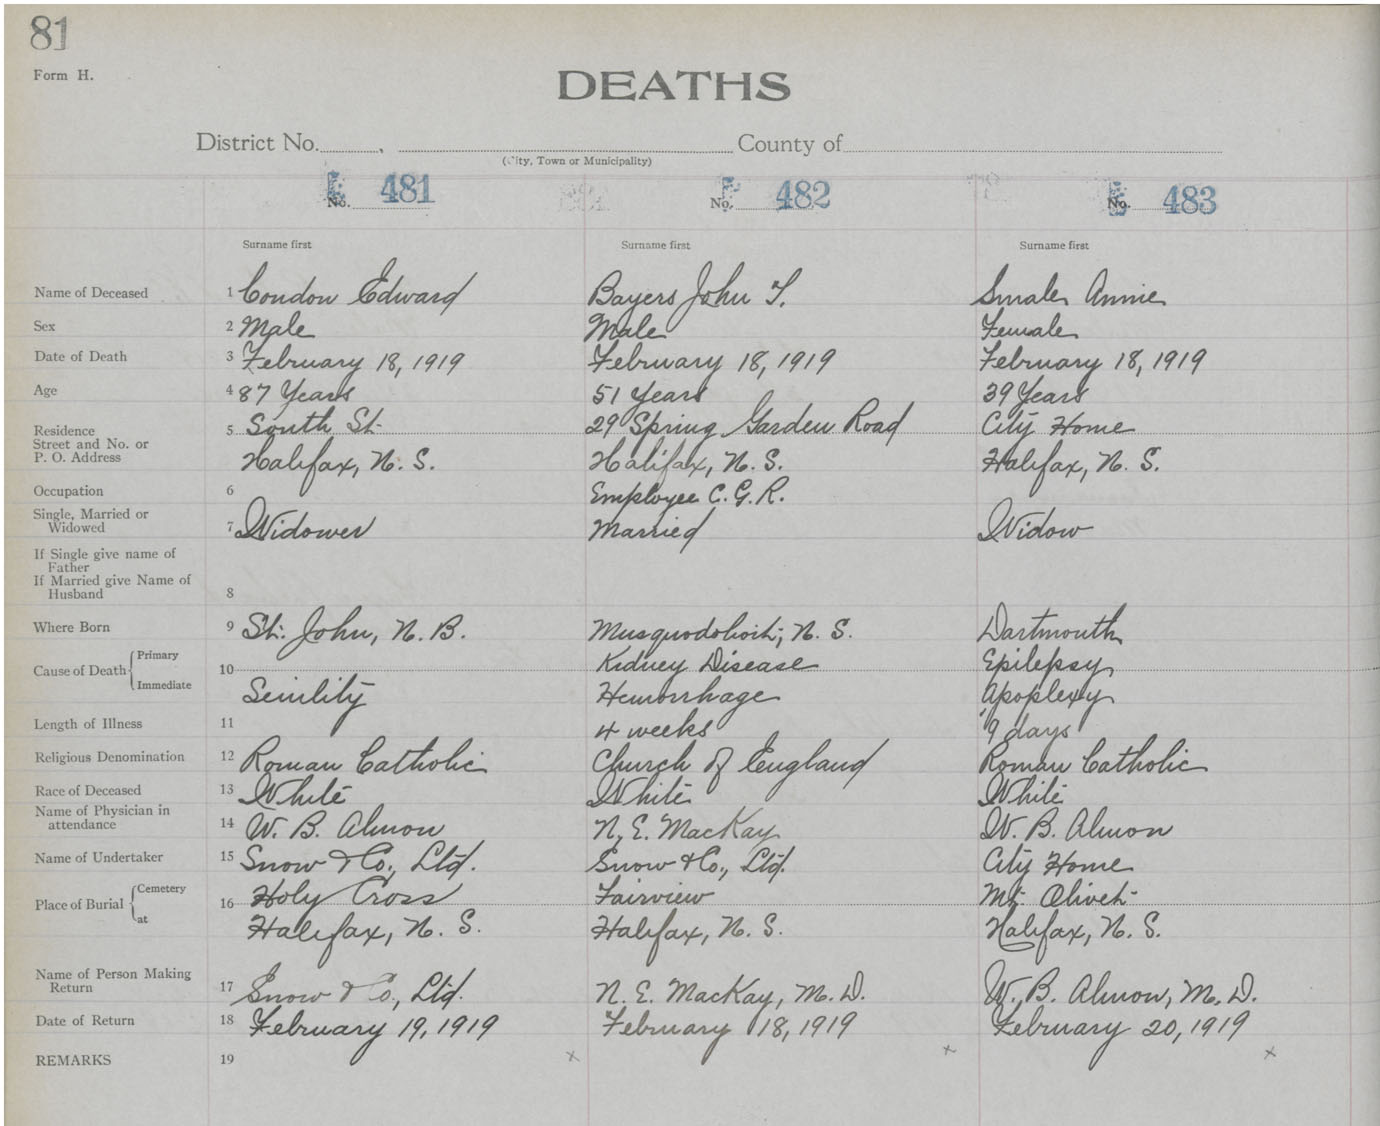 81
Form H.
DEATHS
District No. County of
(City, Town or Municipality)
No. 481 No. 482 No. 483
Surname first Surname first Surname first
Name of Deceased 1 Condon Edward Bayers John T. Smales Annie
Sex 2 Male Male Female
Date of Death 3 February 18, 1919 February 18, 1919 February 18, 1919
Age 4 87 Years 51 Years 39 Years
Residence
Street and No. or
P. O. Address
5 South St. 29 Spring Garden Road City Home
Halifax, N. S. Halifax, N. S. Halifax, N. S.
Occupation 6 Employee C. G. R.
Single, Married or
Widowed
7 Widower Married Widow
If Single give name of
Father
If Married give Name of
Husband
8
Where Born 9 St. John, N. B. Musquodoboit, N. S. Dartmouth
Cause of Death Primary 10 Kidney Disease Epilepsy
Immediate Senility Hemorrhage Apoplexy
Length of Illness 11 4 weeks 9 days
Religious Denomination 12 Roman Catholic Church of England Roman Catholic
Race of Deceased 13 White White White
Name of Physician in
attendance
14 W. B. Almon N. E. MacKay W. B. Almon
Name of Undertaker 15 Snow & Co., Ltd. Snow & Co., Ltd. City Home
Place of Burial Cemetery 16 Holy Cross Fairview Mt. Olivet
at Halifax, N. S. Halifax, N. S. Halifax, N. S.
Name of Person Making
Return
17 Snow & Co., Ltd. N. E. MacKay, M. D. W. B. Almon, M. D.
Date of Return 18 February 19, 1919 February 18, 1919 February 20, 1919
REMARKS 19 x x x